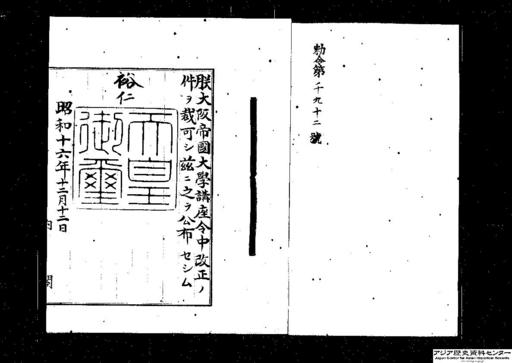 勅令第千九十二號
朕大阪帝國大學講座令中改正ノ
件ヲ裁可シ茲ニ之ヲ公布セシム
裕仁
天皇
御璽
昭和十六年十二月十二日
内閣
アジア歴史資料センター
Japan Center for Asian Historical Records